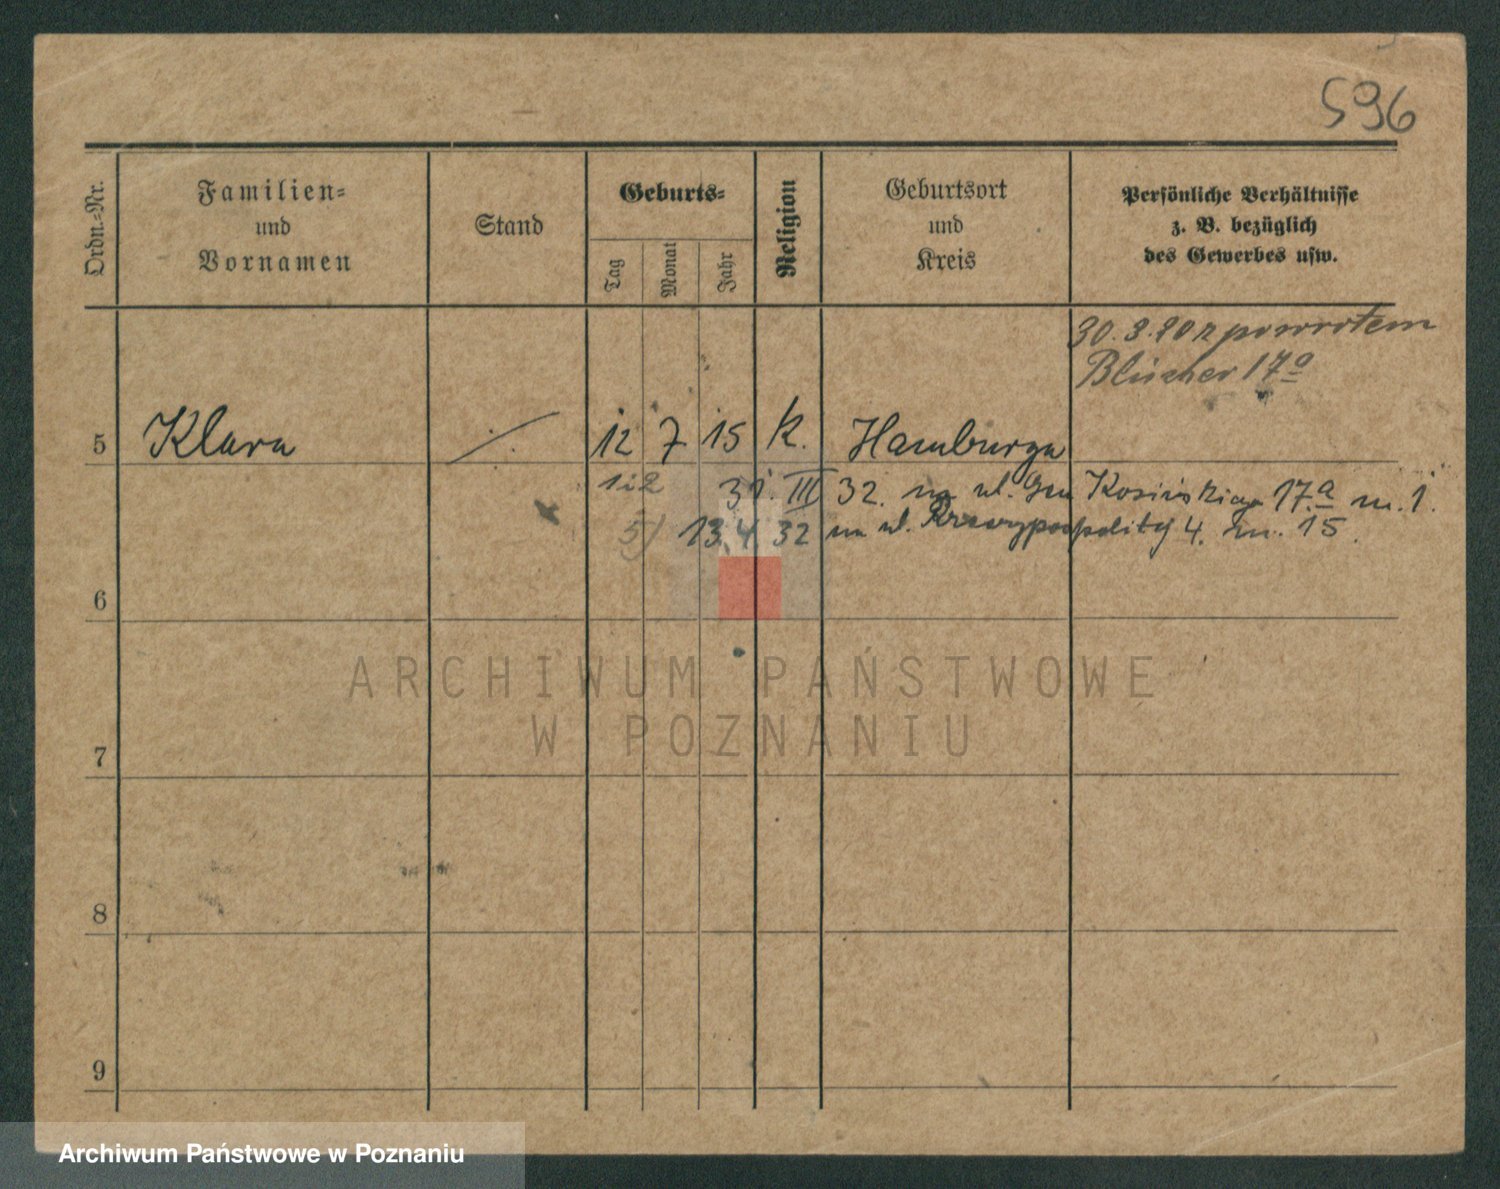 596
Ordn.-Nr.
Familien-
und
Vornamen
Stand
Geburts-
Tag
Monat
Jahr
Religion
Geburtsort
und
Kreis
Persönliche Verhältnisse
z. B. bezüglich
des Gewerbes usw.
30.3.20 z powrotem
Blücher 17a
5 Klara 12 7 15 k. Hamburga
1i2 31. III 32. na ul. Gen Kosińskiego 17.a m. 1.
5) 13.4.32 na ul. Rzeczypospolitej 4. m. 15.
6
ARCHIWUM PAŃSTWOWE
W POZNANIU
7
8
9
Archiwum Państwowe w Poznaniu